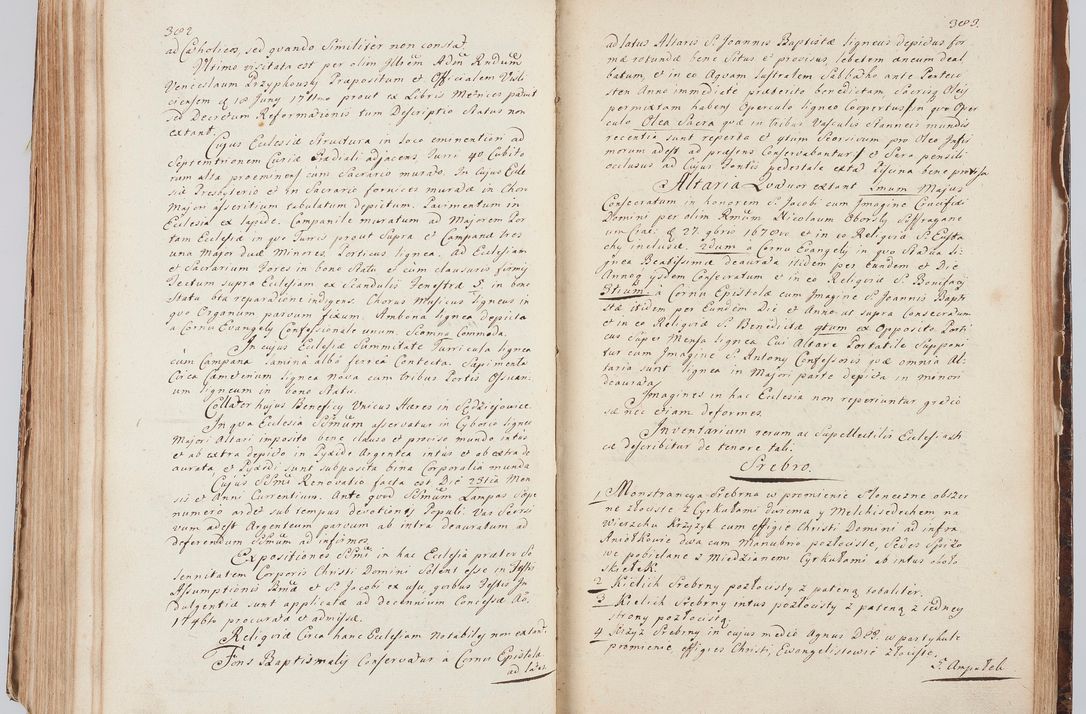 382
ad Catholicos, sed quando Similiter non constat.
Ultimo visitata est per olim Illrem Adm Rndum
Venceslaum Przypkowski Præpositum et Officialem Visli
ciensem d 18 Juny 17 prout ex Libris Metrices patuit
ad Decretum Reformationis tum Descriptio Status non
extant.
Cujus Ecclesiæ structura in loco eminentiori ad
Septemtrionem Curiæ Prædiali adjacens, Turri 40 Cubito
rum alta proeminens cum Sacrario murato. In Cujus Eccle
siæ Presbyterio et in Sacrario fornices muratæ in Choro
Majori asseritium tabulatum depictum. Pavimentum in
Ecclesia ex lapide. Campanile muratum ad Majorem Por
tam Ecclesiæ in quo Turris prout Supra et Campanæ tres
una Major duæ Minores. Porticus lignea. Ad Ecclesiam
et Sacrarium Fores in bono Statu et cum clausuris firmis
Tectum supra Ecclesiam ex Scandulis Fenestræ 5 in bono
Statu bea reparatione indigens. Chorus Musicus ligneus in
quo Organum parvum fixum. Ambona lignea depicta
a Cornu Evangely Confessionale unum. Scamna Commoda.
In cujus Ecclesiæ Summitate Turricula lignea
cum Campana Lamina alba ferrea Contecta. Sepimenta
Circa Cæmeterium lignea Nova cum tribus Portis Ossuari
um ligneum in bono Statu.
Collator hujus Beneficy Unicus Hæres in Sędziejowice.
In qua Ecclesia SSmum asservatur in Cyborio ligneo
Majori Altari imposito bene clauso et proviso mundo intus
et ab extra depicto in Pyxide Argentea intus et ab extra de
aurata, et Pyxidi sunt subposita bina Corporalia munda
Cujus SSmi Renovatio facta est Die 23tia Men
sis et Anni Currentium. Ante quod SSmum Lampas Sæpe
numero ardet sub tempus devotionis Populi Vas Seorsi
vum adest Argenteum parvum ab intra deauratum ad
deferendum SSmum ad infirmos.
Expositiones SSmi in hac Ecclesia præter So
lennitatem Corporis Christi Domini Solent esse in Festis
Assumptionis Bmæ et S. Jacobi ex usu, quibus Festis In
dulgentiæ sunt applicatæ ad decennium Concessæ Ao
1746to procuratæ et admissæ.
Reliquiæ Circa hanc Ecclesiam Notabiles non extant.
Fons Baptismalis Conservatur a Cornu Epistolæ
ad latus
383.
ad latus Altaris S. Joannis Baptistæ ligneus depictus for
mæ rotundæ bene Situs et provisus, lebetem æneum deal,
batum, et in eo Aquam lustralem Sabbatho ante Pentecos
sten Anno immediate præterito benedictam Sacrisq Oleis
permixtam habens Operculo ligneo Coopertus in quo Oper
culo Olea Sacra quæ in tribus Vasculis Stanneis mundis
recentia sunt reperta et qtum Seorsivum pro Oleo Infir
morum adest ad præsens Conservabantur et Sero pensili
occlusus ad Cujus Fontis pedestale extat Piscina bene provisa
Altaria Quatuor extant 1mum Majus
Consecratum in honorem S. Jacobi cum Imagine Crucifixi
Domini per olim Rmum Nicolaum Oborsky Suffragane
um Crac: d 27. qbris 1670 et in eo Reliquiæ S. Eusta
chy inclusæ. 2dum a Cornu Evangely in quo Statua li
gnea Beatissimæ deaurata itidem per Eundem et Die
Annoq ysdem Consecratum et in eo Reliquiæ S. Bonifacy
3tium a Cornu Epistolæ cum Imagine S. Joannis Bapti
stæ itidem per Eundem Die et Anno ut supra Consecratum
et in eo Reliquiæ S. Benedictæ qtum ex Opposito Porti
cus Super Mensa lignea Cui Altare Portatile Supponi
tur cum Imagine S. Antony Confessoris quæ omnia Al
taria sunt lignea in Majori parte depicta in minori
deaurata.
Imagines in hac Ecclesia non reperiuntur gratio
sæ nec etiam deformes.
Inventarium rerum ac Supellectilis Ecclesiasti
cæ describitur de tenore tali.
Srebro.
1 Monstrancya Srebrna w promienie Słoneczne obszer
ne złociste z Cyrkułami dwiema y Melchisedechem na
Wierzchu Krzyżyk cum effigie Christi Domini ad infra
Aniołkowie dwa cum Manubrio pozłociste, Sedes Spiżo
we pobielane z Miedzianem Cyrkułami ab intus około
skrętek.
2 Kielich Srebrny pozłocisty z pateną totaliter.
3 Kielich Srebrny intus pozłocisty z pateną z iedney
strony pozłocistą.
4 Krzyż Srebrny in cujus medio Agnus DEI, w partykule
promienie, effigies Christi, Ewangelistowie złociste.
5. Ampułek